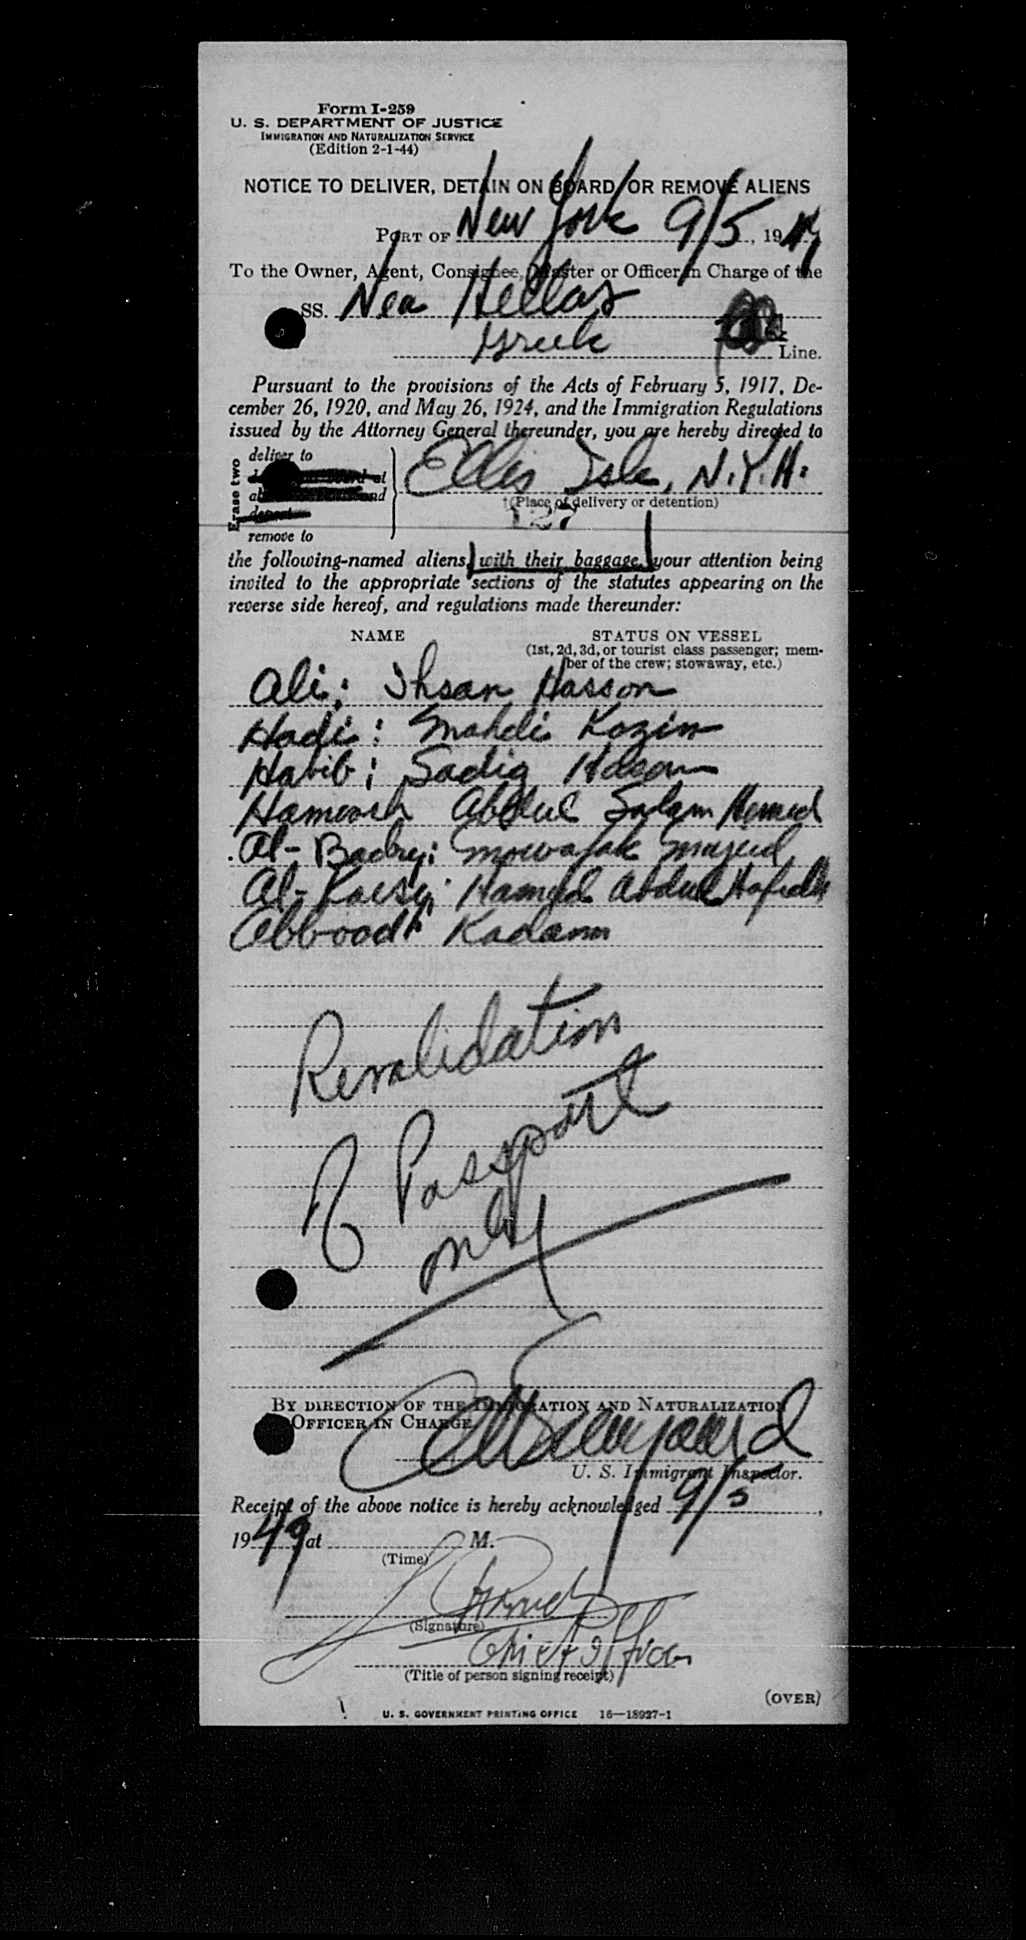 Form I-259
U. S. DEPARTMENT OF JUSTICE
IMMIGRATION AND NATURALIZATION SERVICE
(Edition 2-1-44)
NOTICE TO DELIVER, DETAIN ON BOARD, OR REMOVE ALIENS
PORT OF New York 9/5, 1949
To the Owner, Agent, Consignee, Master or Officer in Charge of the
SS. Nea Hellas
Greek Line.
Pursuant to the provisions of the Acts of February 5, 1917, De-
cember 26, 1920, and May 26, 1924, and the Immigration Regulations
issued by the Attorney General thereunder, you are hereby directed to
Erase two
deliver to
remove to
Ellis Isle, N.Y.H.
(Place of delivery or detention)
127
the following-named aliens, with their baggage, your attention being
invited to the appropriate sections of the statutes appearing on the
reverse side hereof, and regulations made thereunder:
NAME STATUS ON VESSEL
(1st, 2d, 3d, or tourist class passenger; mem-
ber of the crew; stowaway, etc.)
Ali: Ihsan Hasson
Hadi: Mahdi Kozim
Habib: Sadig
Abdul Salam
Al-Badry: Mowafak Majed
Hamed Abdul
Abbood: Kadam
Revalidation
of Passport
only
BY DIRECTION OF THE IMMIGRATION AND NATURALIZATION
OFFICER IN CHARGE
U. S. Immigrant Inspector.
Receipt of the above notice is hereby acknowledged 9/5,
1949 at M.
(Time)
(Signature)
Chief Officer
(Title of person signing receipt)
(OVER)
U. S. GOVERNMENT PRINTING OFFICE 16—18927-1